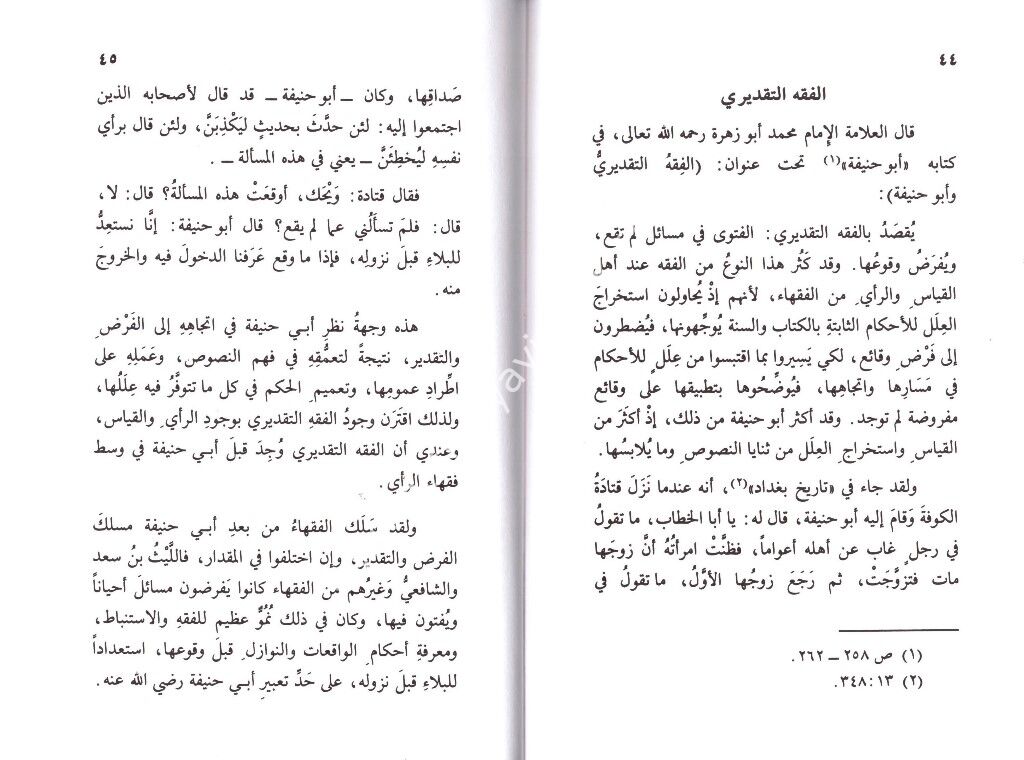 ٤٤
الفقه التقديري
قال العلامة الإمام محمد أبو زهرة رحمه الله تعالى، في
كتابه «أبو حنيفة»(١) تحت عنوان: (الفِقهُ التقديريُّ
وأبو حنيفة):
يُقصَدُ بالفقه التقديري: الفتوى في مسائل لم تقع،
ويُفرَضُ وقوعُها. وقد كَثُر هذا النوعُ من الفقه عند أهلِ
القياسِ والرأيِ من الفقهاء، لأنهم إذْ يُحاولون استخراجَ
العِلَل للأحكام الثابتةِ بالكتاب والسنة يُوجِّهونها، فيُضطرون
إلى فَرْضِ وقائع، لكي يَسِيروا بما اقتبسوا من عِلَلٍ للأحكام
في مَسَارِها واتجاهِها، فيُوضِّحُوها بتطبيقها على وقائع
مفروضة لم توجد. وقد أكثر أبو حنيفة من ذلك، إذْ أكثَرَ من
القياسِ واستخراجِ العِلَل من ثنايا النصوصِ وما يُلابسُها.
ولقد جاء في «تاريخ بغداد»(٢)، أنه عندما نَزَلَ قتادَةُ
الكوفةَ وَقامَ إليه أبو حنيفة، قال له: يا أبا الخطاب، ما تقولُ
في رجلٍ غاب عن أهله أعواماً، فظنَّتْ امرأتُهُ أنَّ زوجَها
مات فتزوَّجَتْ، ثم رَجَعَ زوجُها الأوَّلُ، ما تقولُ في
(١) ص ٢٥٨ – ٢٦٢.
(٢) ١٣: ٣٤٨.
٤٥
صَداقِها، وكان – أبو حنيفة – قد قال لأصحابه الذين
اجتمعوا إليه: لئن حدَّثَ بحديثٍ ليَكْذِبَنَّ، ولئن قال برأي
نفسِهِ ليُخطِئَنَّ – يعني في هذه المسألة –.
فقال قتادة: وَيْحَك، أوقعَتْ هذه المسألةُ؟ قال: لا،
قال: فلمَ تسألُني عما لم يقع؟ قال أبو حنيفة: إنَّا نستعِدُّ
للبلاءِ قبلَ نزولِه، فإذا ما وقع عَرَفنا الدخولَ فيه والخروجَ
منه.
هذه وجهةُ نظرِ أبي حنيفة في اتجاهِهِ إلى الفَرْضِ
والتقدير، نتيجةً لتعمُّقِهِ في فهم النصوص، وعَمَلِهِ على
اطِّرادِ عمومِها، وتعميمِ الحكم في كل ما تتوفَّرُ فيه عِلَلُها،
ولذلك اقتَرَن وجودُ الفقه التقديري بوجودِ الرأيِ والقياس،
وعندي أن الفقه التقديري وُجِدَ قبلَ أبي حنيفة في وسط
فقهاء الرأي.
ولقد سَلَك الفقهاءُ من بعدِ أبي حنيفة مسلكَ
الفرض والتقدير، وإن اختلفوا في المقدار، فاللَّيْثُ بنُ سعد
والشافعيُّ وَغيرُهم من الفقهاء كانوا يَفرضون مسائلَ أحياناً
ويُفتون فيها، وكان في ذلك نُمُوٌّ عظيم للفقه والاستنباط،
ومعرفةِ أحكامِ الواقعات والنوازلِ قبلَ وقوعها، استعداداً
للبلاءِ قبلَ نزوله، على حَدِّ تعبيرِ أبي حنيفة رضي الله عنه.